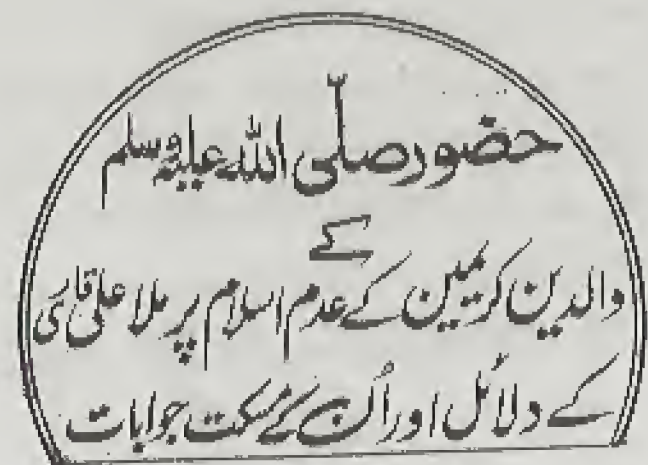 حضور صلّی اللہ علیہ وسلم
کے
والدین کریمین کے عدم اسلام پر ملا علی قاری
کے دلائل اور اُن کے مسکت جوابات